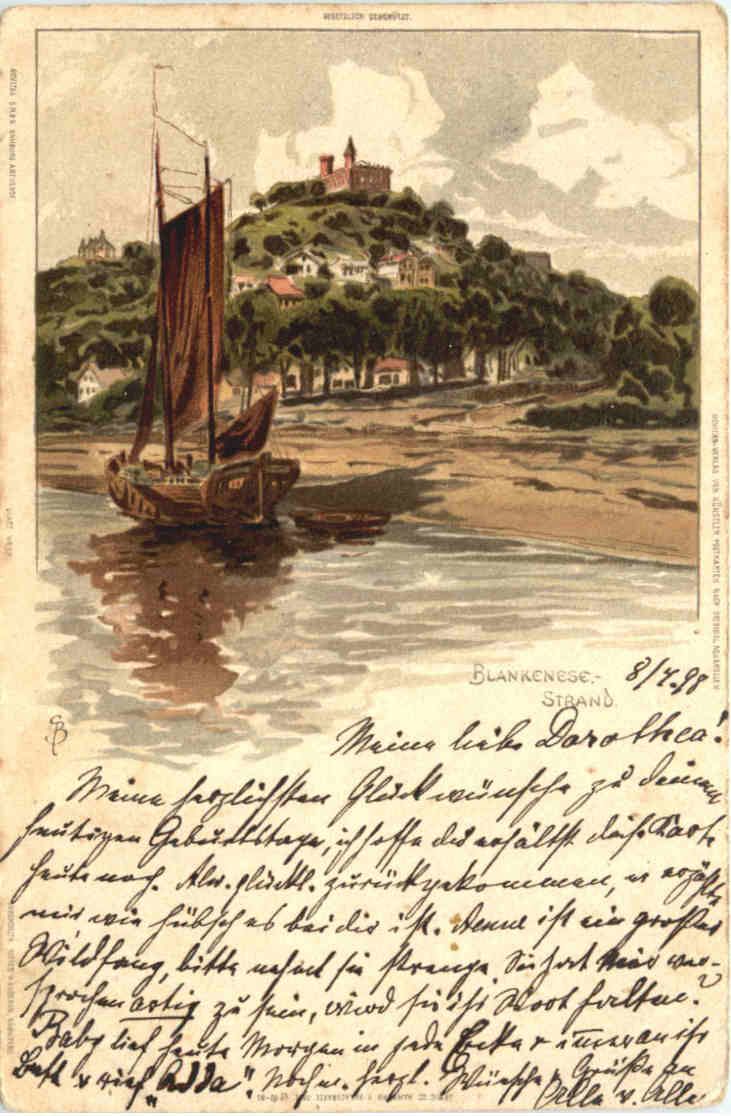 GESETZLICH GESCHÜTZT.
BLANKENESE.-
STRAND.
8/7.98
Meine liebe Dorothea!
Meine herzlichsten Glückwünsche zu deinem
heutigen Geburtstage, ich hoffe du erhältst diese Karte
heute noch. glückl. zurückgekommen, er erzählte
mir wie hübsch es bei dir ist. ist ein großer
Wildfang, bitte nehmt sie strenge. Sie hat mir ver-
sprochen artig zu sein, wird sie ihr Wort halten?
Baby lief heute Morgen in jede Ecke & immer an ihr
Bett & rief "Adda". Noch m. herzl. Wünsche & Grüße an
Alle v. Alle